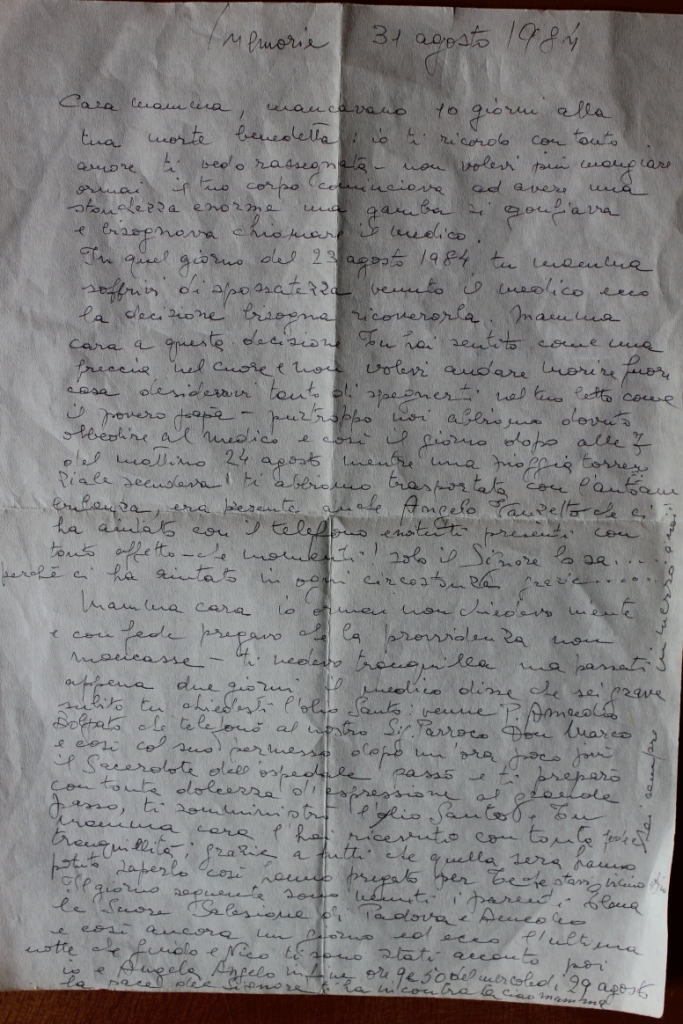 Memorie 31 agosto 1984
Cara mamma, mancavano 10 giorni alla
tua morte benedetta: io ti ricordo con tanto
amore ti vedo rassegnata - non volevi più mangiare
ormai il tuo corpo cominciava ad avere una
stanchezza enorme una gamba si gonfiava
e bisognava chiamare il medico.
In quel giorno del 23 agosto 1984, tu mamma
soffrivi di spossatezza venuto il medico ecco
la decisione bisogna ricoverarla. Mamma
cara a questa decisione Tu hai sentito come una
freccia nel cuore e non volevi andare morire fuori
casa desideravi tanto di spegnerti nel tuo letto come
il povero papà - purtroppo noi abbiamo dovuto
obbedire al medico e così il giorno dopo alle 7
del mattino 24 agosto mentre una pioggia torren
ziale scendeva ti abbiamo trasportata con l'autoam
bulanza, era presente anche Angelo che ci
ha aiutato con il telefono presenti con
tanto affetto - che momenti! solo il Signore lo sa...
perché ci ha aiutato in ogni circostanza grazie.....
Mamma cara io ormai non chiedevo niente
e con fede pregavo che la provvidenza non
mancasse - ti vedevo tranquilla ma passati
appena due giorni il medico disse che sei grave
subito tu chiedesti l'olio Santo: venne P. Amedeo
che telefonò al nostro Sig. Parroco Don Marco
e così col suo permesso dopo un'ora poco più
il Sacerdote dell'ospedale passò e ti preparò
con tanta dolcezza d'espressione al grande
passo, ti somministrò l'olio Santo e Tu
Mamma cara l'hai ricevuto con tanta fede
tranquillità; grazie a tutti che quella sera hanno
potuto saperlo così hanno pregato per Te
Il giorno seguente sono venuti i parenti Elena
le Suore Salesiane di Padova e Amedeo
e così ancora un giorno ed ecco l'ultima
notte che Guido e Nico ti sono stati accanto poi
io e Angela Angelo infine ore 9 e 50 del mercoledì 29 agosto
la pace del Signore ti ha incontrata ciao mamma
sarai sempre in mezzo a noi